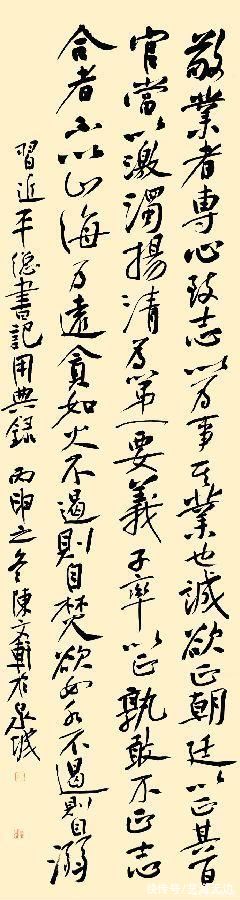 敬業者專心致志以为事其業也誠欲正朝廷以正其百
官當以激濁揚清为第一要義子率以正孰敢不正志
合者不以山海为遠貪如火不遏則自焚欲如水不遏則自溺
習近平總書記用典錄 丙申之冬陳文軒於泉城